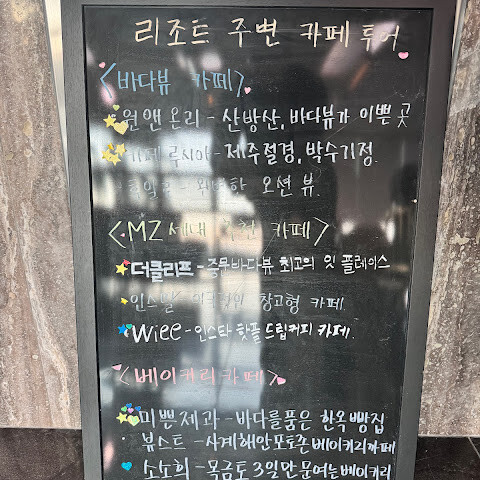 리조트 주변 카페 투어
<바다뷰 카페>
원앤온리 - 산방산, 바다뷰가 이쁜 곳
카페 루시아 - 제주절경, 박수기정.
오션 뷰.
<MZ세대 추천 카페>
더클리프 - 중문바다뷰 최고의 잇 플레이스
창고형 카페.
Wiee - 인스타 핫플 드립커피 카페.
<베이커리카페>
미쁜제과 - 바다를품은 한옥빵집
뷰스트 - 사계해안포토존베이커리카페
소소희 - 목금토3일만문여는베이커리